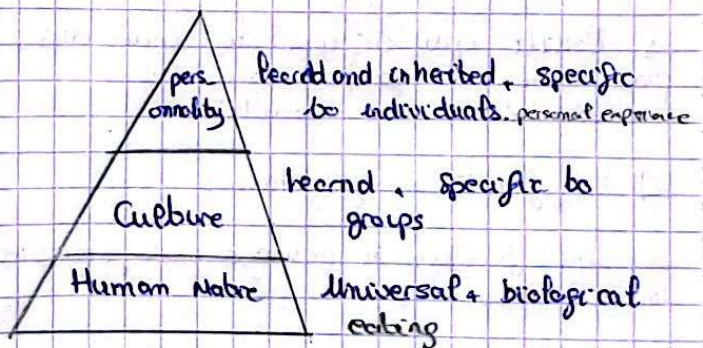 pers-
onnality
learnd and inherited, specific
to individuals. personal exprience
Culture
learnd, specific to
groups
Human Nature
Universal + biological
eating